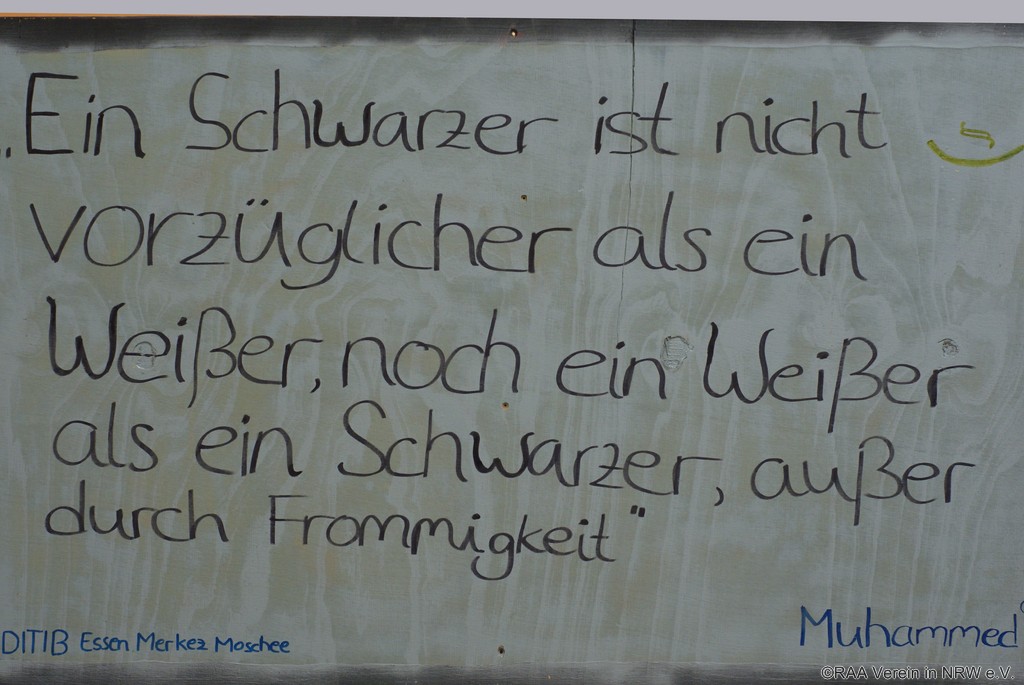 „Ein Schwarzer ist nicht
vorzüglicher als ein
Weißer, noch ein Weißer
als ein Schwarzer, außer
durch Frommigkeit"
Muhammed
DITIB Essen Merkez Moschee
©RAA Verein in NRW e.V.